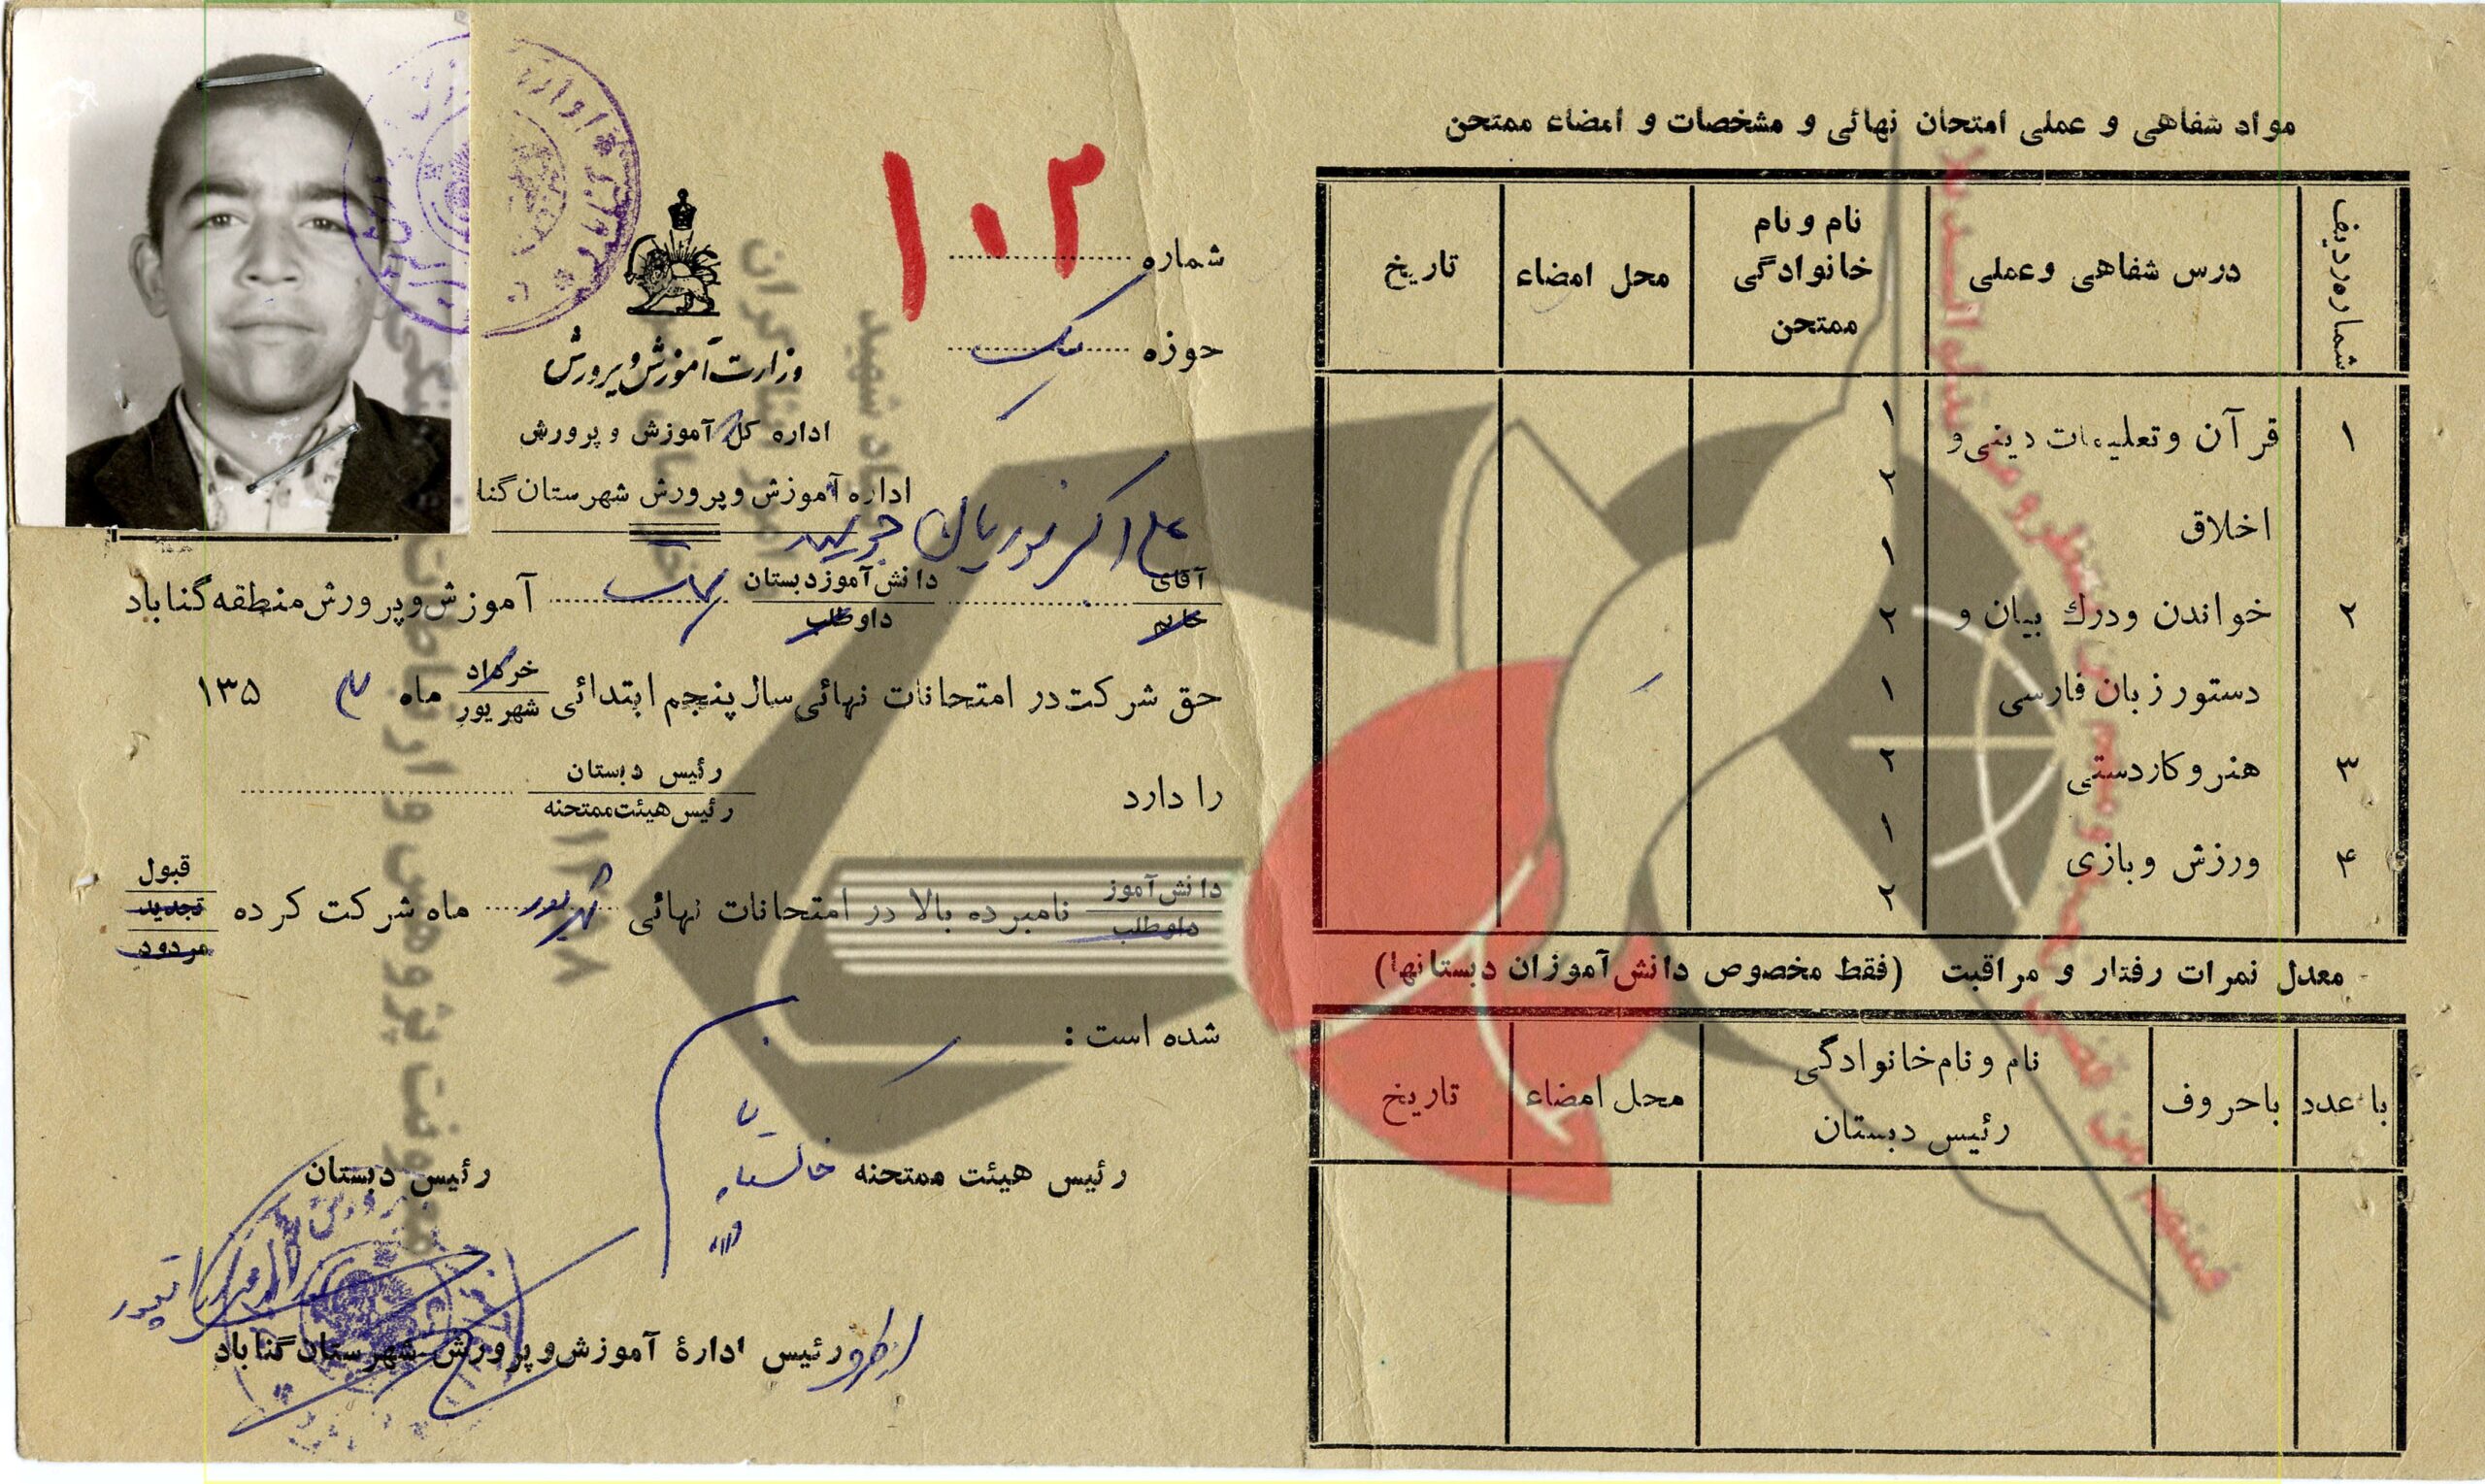 مواد شفاهی و عملی امتحان نهائی و مشخصات و امضاء ممتحن
شماره ردیف
درس شفاهی و عملی
نام و نام خانوادگی ممتحن
محل امضاء
تاریخ
۱ قرآن و تعلیمات دینی و ۱
اخلاق ۲
۱
۲ خواندن و درك بیان و ۲
دستور زبان فارسی ۱
۳ هنر و کاردستی ۲
۱
۴ ورزش و بازی
۲
معدل نمرات رفتار و مراقبت (فقط مخصوص دانش‌آموزان دبستانها)
با عدد
با حروف
نام و نام خانوادگی
رئیس دبستان
محل امضاء
تاریخ
شماره ۱۰۲
حوزه
وزارت آموزش و پرورش
اداره کل آموزش و پرورش
اداره آموزش و پرورش شهرستان گنا
علی اکبر نوریان
آقای دانش‌آموز دبستان آموزش و پرورش منطقه گناباد
خانم داوطلب
حق شرکت در امتحانات نهائی سال پنجم ابتدائی خرداد ماه ۱۳۵
شهریور
رئیس دبستان
را دارد
رئیس هیئت ممتحنه
دانش‌آموز قبول
نامبرده بالا در امتحانات نهائی شهریور ماه شرکت کرده تجدید
داوطلب مردود
شده است :
رئیس هیئت ممتحنه رئیس دبستان
رئیس ادارهٔ آموزش و پرورش شهرستان گناباد
معاونت پژوهش و ارتباطات